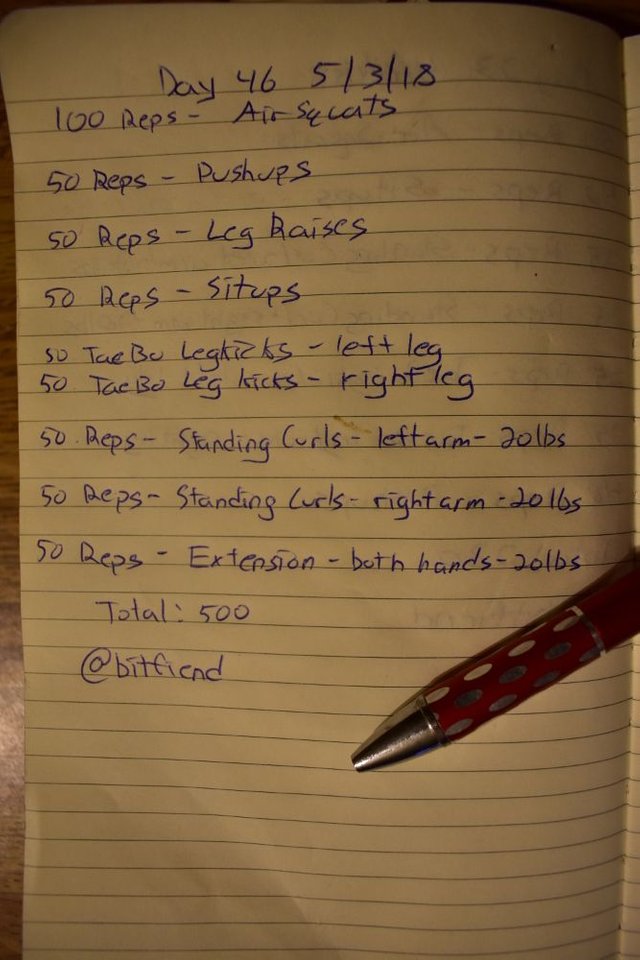 Day 46 5/3/18
100 Reps - Air Squats
50 Reps - Pushups
50 Reps - Leg Raises
50 Reps - Situps
50 TaeBo Legkicks - left leg
50 TaeBo Leg kicks - right leg
50 Reps - Standing Curls - left arm - 20lbs
50 Reps - Standing Curls - right arm - 20lbs
50 Reps - Extension - both hands - 20lbs
Total: 500
@bitfiend